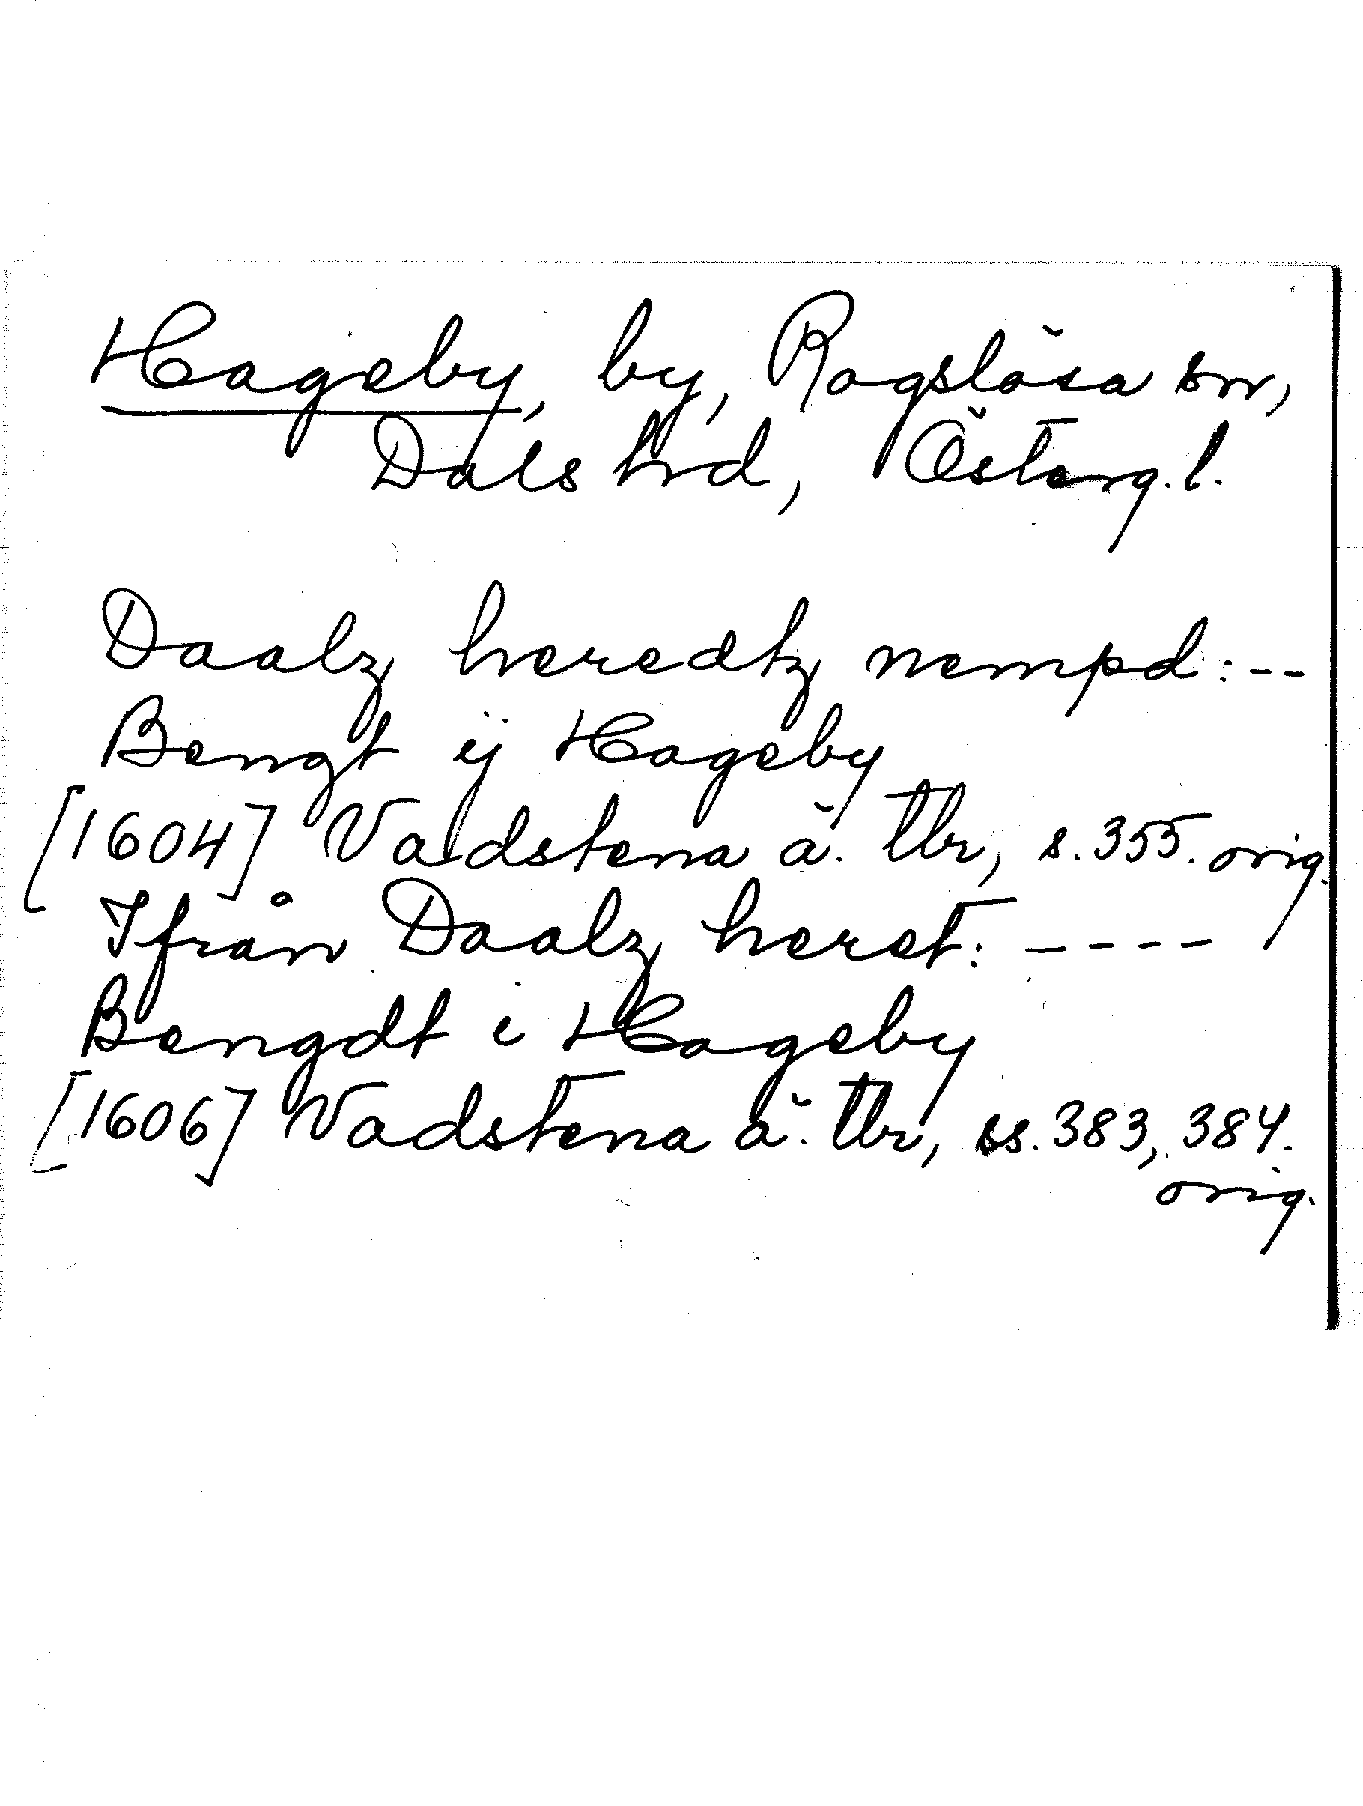 Hageby, by, Rogslösa sn,
Dals hrd, Österg.l.
Daalz heredtz nempd:--
Bengt ij Hageby
[1604] Vadstena ä. tbr, s.355. orig.
Ifrån Daalz heret: ----
Bengdt i Hageby
[1606] Vadstena ä. tbr, ss.383, 384.
orig.